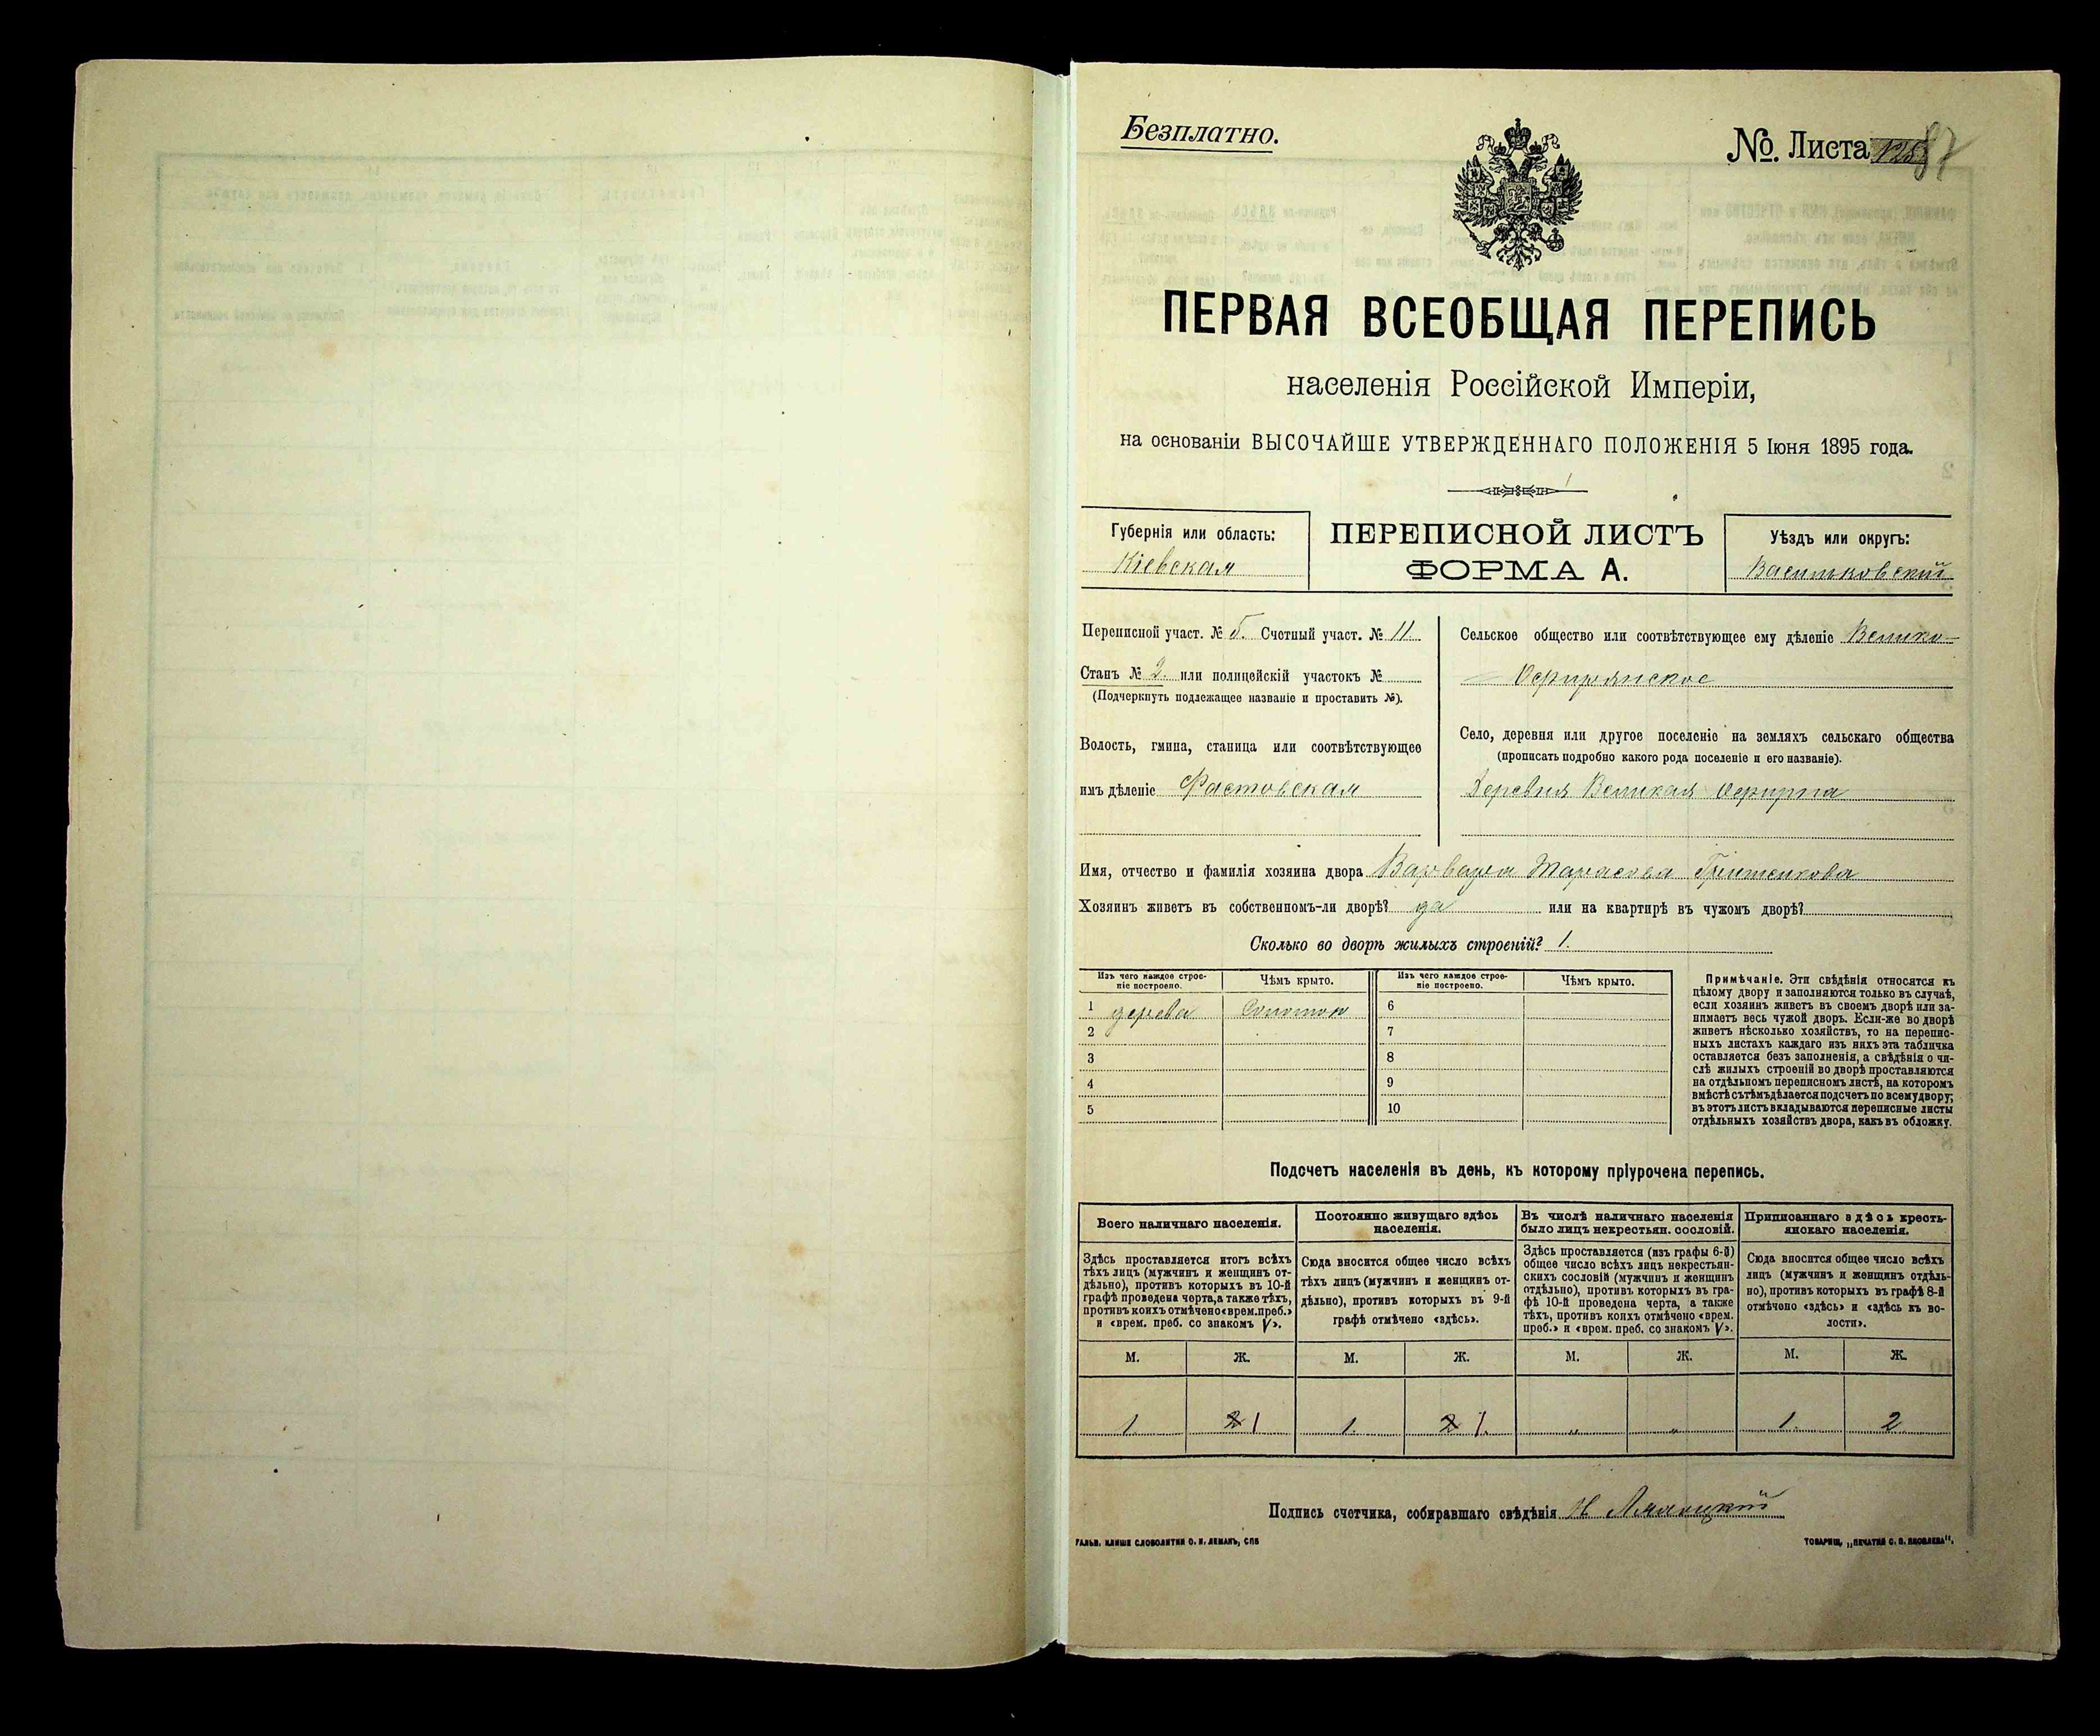 Безплатно.
№. Листа 87
ПЕРВАЯ ВСЕОБЩАЯ ПЕРЕПИСЬ
населенія Россійской Имперіи,
на основаніи ВЫСОЧАЙШЕ УТВЕРЖДЕННАГО ПОЛОЖЕНІЯ 5 Іюня 1895 года.
Губернія или область:
Кіевская
ПЕРЕПИСНОЙ ЛИСТЪ
ФОРМА А.
Уѣздъ или округъ:
Васильковский
Переписной участ. № 5. Счетный участ. № 11.
Станъ № 2. или полицейскій участокъ №
(Подчеркнуть подлежащее названіе и проставить №).
Волость, гмина, станица или соотвѣтствующее
имъ дѣленіе Фастовская
Сельское общество или соотвѣтствующее ему дѣленіе Велико-
Офирнянское
Село, деревня или другое поселеніе на земляхъ сельскаго общества
(прописать подробно какого рода поселеніе и его названіе).
Деревня Великая Офирна
Имя, отчество и фамилія хозяина двора Варвара Тарасова
Хозяинъ живетъ въ собственномъ-ли дворѣ? да или на квартирѣ въ чужомъ дворѣ?
Сколько во дворѣ жилыхъ строеній? 1.
Изъ чего каждое строе-
ніе построено.
Чѣмъ крыто.
Изъ чего каждое строе-
ніе построено.
Чѣмъ крыто.
1 дерева Соломою 6
2 7
3 8
4 9
5 10
Примѣчаніе. Эти свѣдѣнія относятся къ
цѣлому двору и заполняются только въ случаѣ,
если хозяинъ живетъ въ своемъ дворѣ или за-
нимаетъ весь чужой дворъ. Если-же во дворѣ
живетъ нѣсколько хозяйствъ, то на перепис-
ныхъ листахъ каждаго изъ нихъ эта табличка
оставляется безъ заполненія, а свѣдѣнія о чи-
слѣ жилыхъ строеній во дворѣ проставляются
на отдѣльномъ переписномъ листѣ, на которомъ
вмѣстѣ съ тѣмъ дѣлается подсчетъ по всему двору;
въ этотъ листъ вкладываются переписные листы
отдѣльныхъ хозяйствъ двора, какъ въ обложку.
Подсчетъ населенія въ день, къ которому пріурочена перепись.
Всего наличнаго населенія.
Здѣсь проставляется итогъ всѣхъ
тѣхъ лицъ (мужчинъ и женщинъ от-
дѣльно), противъ которыхъ въ 10-й
графѣ проведена черта, а также тѣхъ,
противъ коихъ отмѣчено «врем. преб.»
и «врем. преб. со знакомъ V».
Постоянно живущаго здѣсь
населенія.
Сюда вносится общее число всѣхъ
тѣхъ лицъ (мужчинъ и женщинъ от-
дѣльно), противъ которыхъ въ 9-й
графѣ отмѣчено «здѣсь».
Въ числѣ наличнаго населенія
было лицъ некрестьян. сословій.
Здѣсь проставляется (изъ графы 6-й)
общее число всѣхъ лицъ некрестьян-
скихъ сословій (мужчинъ и женщинъ
отдѣльно), противъ которыхъ въ гра-
фѣ 10-й проведена черта, а также
тѣхъ, противъ коихъ отмѣчено «врем.
преб.» и «врем. преб. со знакомъ V».
Приписаннаго здѣсь кресть-
янскаго населенія.
Сюда вносится общее число всѣхъ
лицъ (мужчинъ и женщинъ отдѣль-
но), противъ которыхъ въ графѣ 8-й
отмѣчено «здѣсь» и «здѣсь къ во-
лости».
М. Ж. М. Ж. М. Ж. М. Ж.
1 2 1 1. 2 1. „ „ 1. 2
Подпись счетчика, собиравшаго свѣдѣнія
ГАЛЬВ. КЛИШЕ СЛОВОЛИТНИ О. И. ЛЕМАНЪ, СПБ
ТОВАРИЩ. „ПЕЧАТНЯ С. П. ЯКОВЛЕВА“.